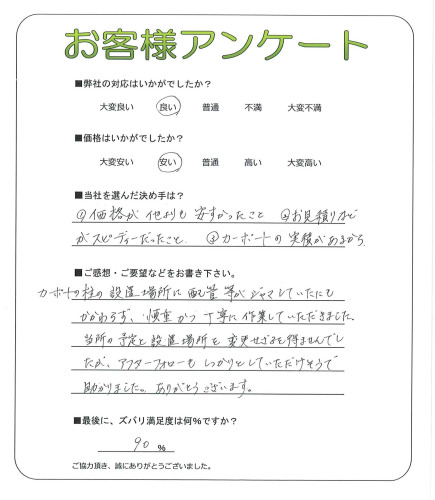 お客様アンケート
■弊社の対応はいかがでしたか？
大変良い 良い 普通 不満 大変不満
■価格はいかがでしたか？
大変安い 安い 普通 高い 大変高い
■当社を選んだ決め手は？
①価格が他よりも安すかったこと ②お見積りなど
がスピーディーだったこと ③カーポートの実積があるから
■ご感想・ご要望などをお書き下さい。
カーポートの柱の設置場所に配管等がジャマしていたにも
かかわらず、慎重かつ丁寧に作業していただきました。
当所の予定と設置場所を変更せざるを得ませんでし
たが、アフターフォローもしっかりとしていただけそうで
助かりました。ありがとうございます。
■最後に、ズバリ満足度は何％ですか？
90 ％
ご協力頂き、誠にありがとうございました。